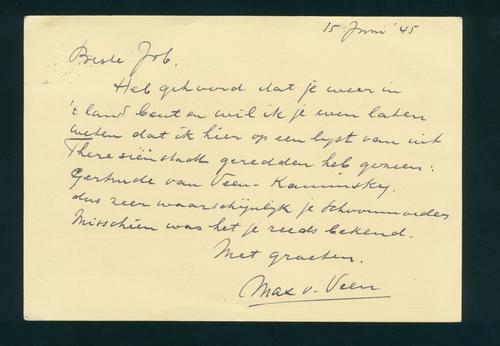 15 Juni '45
Beste Job,
Heb gehoord dat je weer in
't land bent en wil ik je even laten
weten dat ik hier op een lijst van uit
Theresiënstadt geredden heb gezien:
Gertrude van Veen-Kaminsky.
dus zeer waarschijnlijk je schoonmoeder
Misschien was het je reeds bekend.
Met groeten.
Max v. Veen